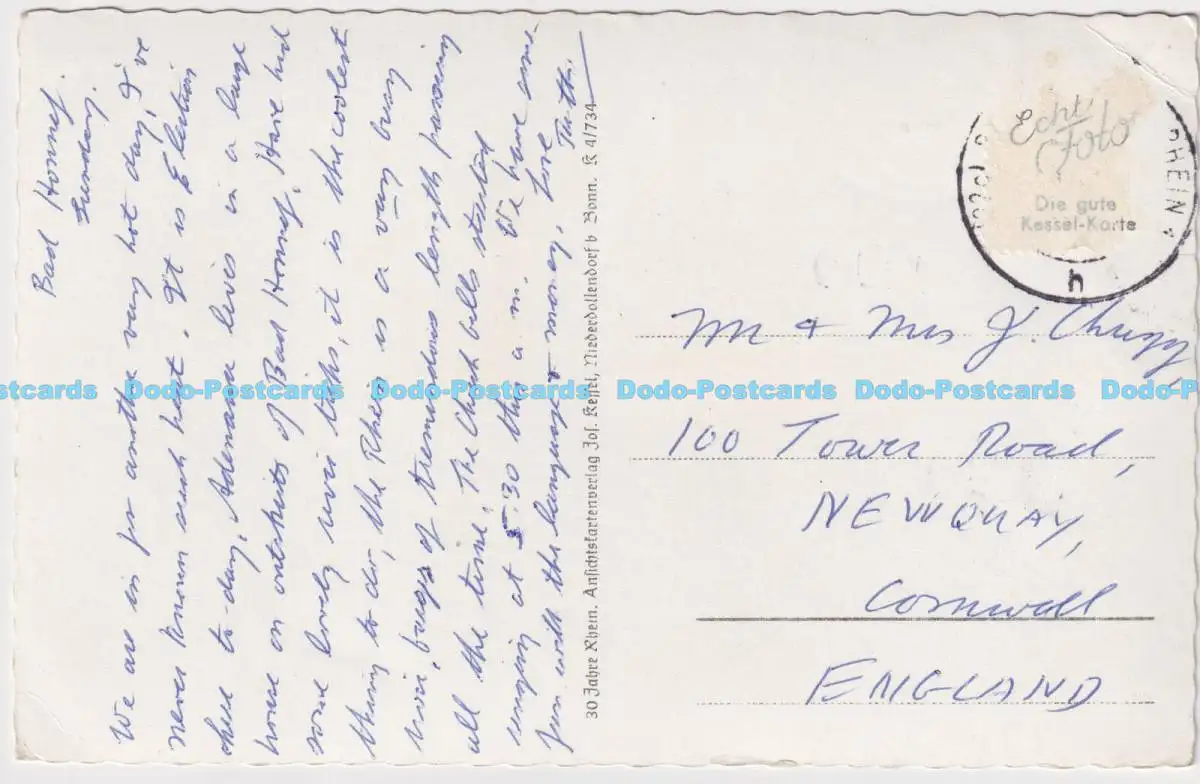 Bad Honnef.
Sunday.
We are in for another very hot day, I've
never known such heat. It is Election
here to-day, Adenauer lives in a large
house on outskirts of Bad Honnef. Have had
some lovely river trips, it is the coolest
thing to do, the Rhein is a very busy
river, barges of tremendous length passing
all the time. The Church bells started
ringing at 5.30 this a.m. We have some
fun with the language & money. Love
Ruth.
30 Jahre Rhein. Ansichtskartenverlag Jos. Kessel, Niederdollendorf b Bonn. K 4/734
Echt
Foto
Die gute
Kessel-Karte
RHEIN
h
Mr & Mrs J. Chugg,
100 Tower Road,
NEWQUAY,
Cornwall
ENGLAND
Dodo-Postcards Dodo-Postcards Dodo-Postcards Dodo-Postcards